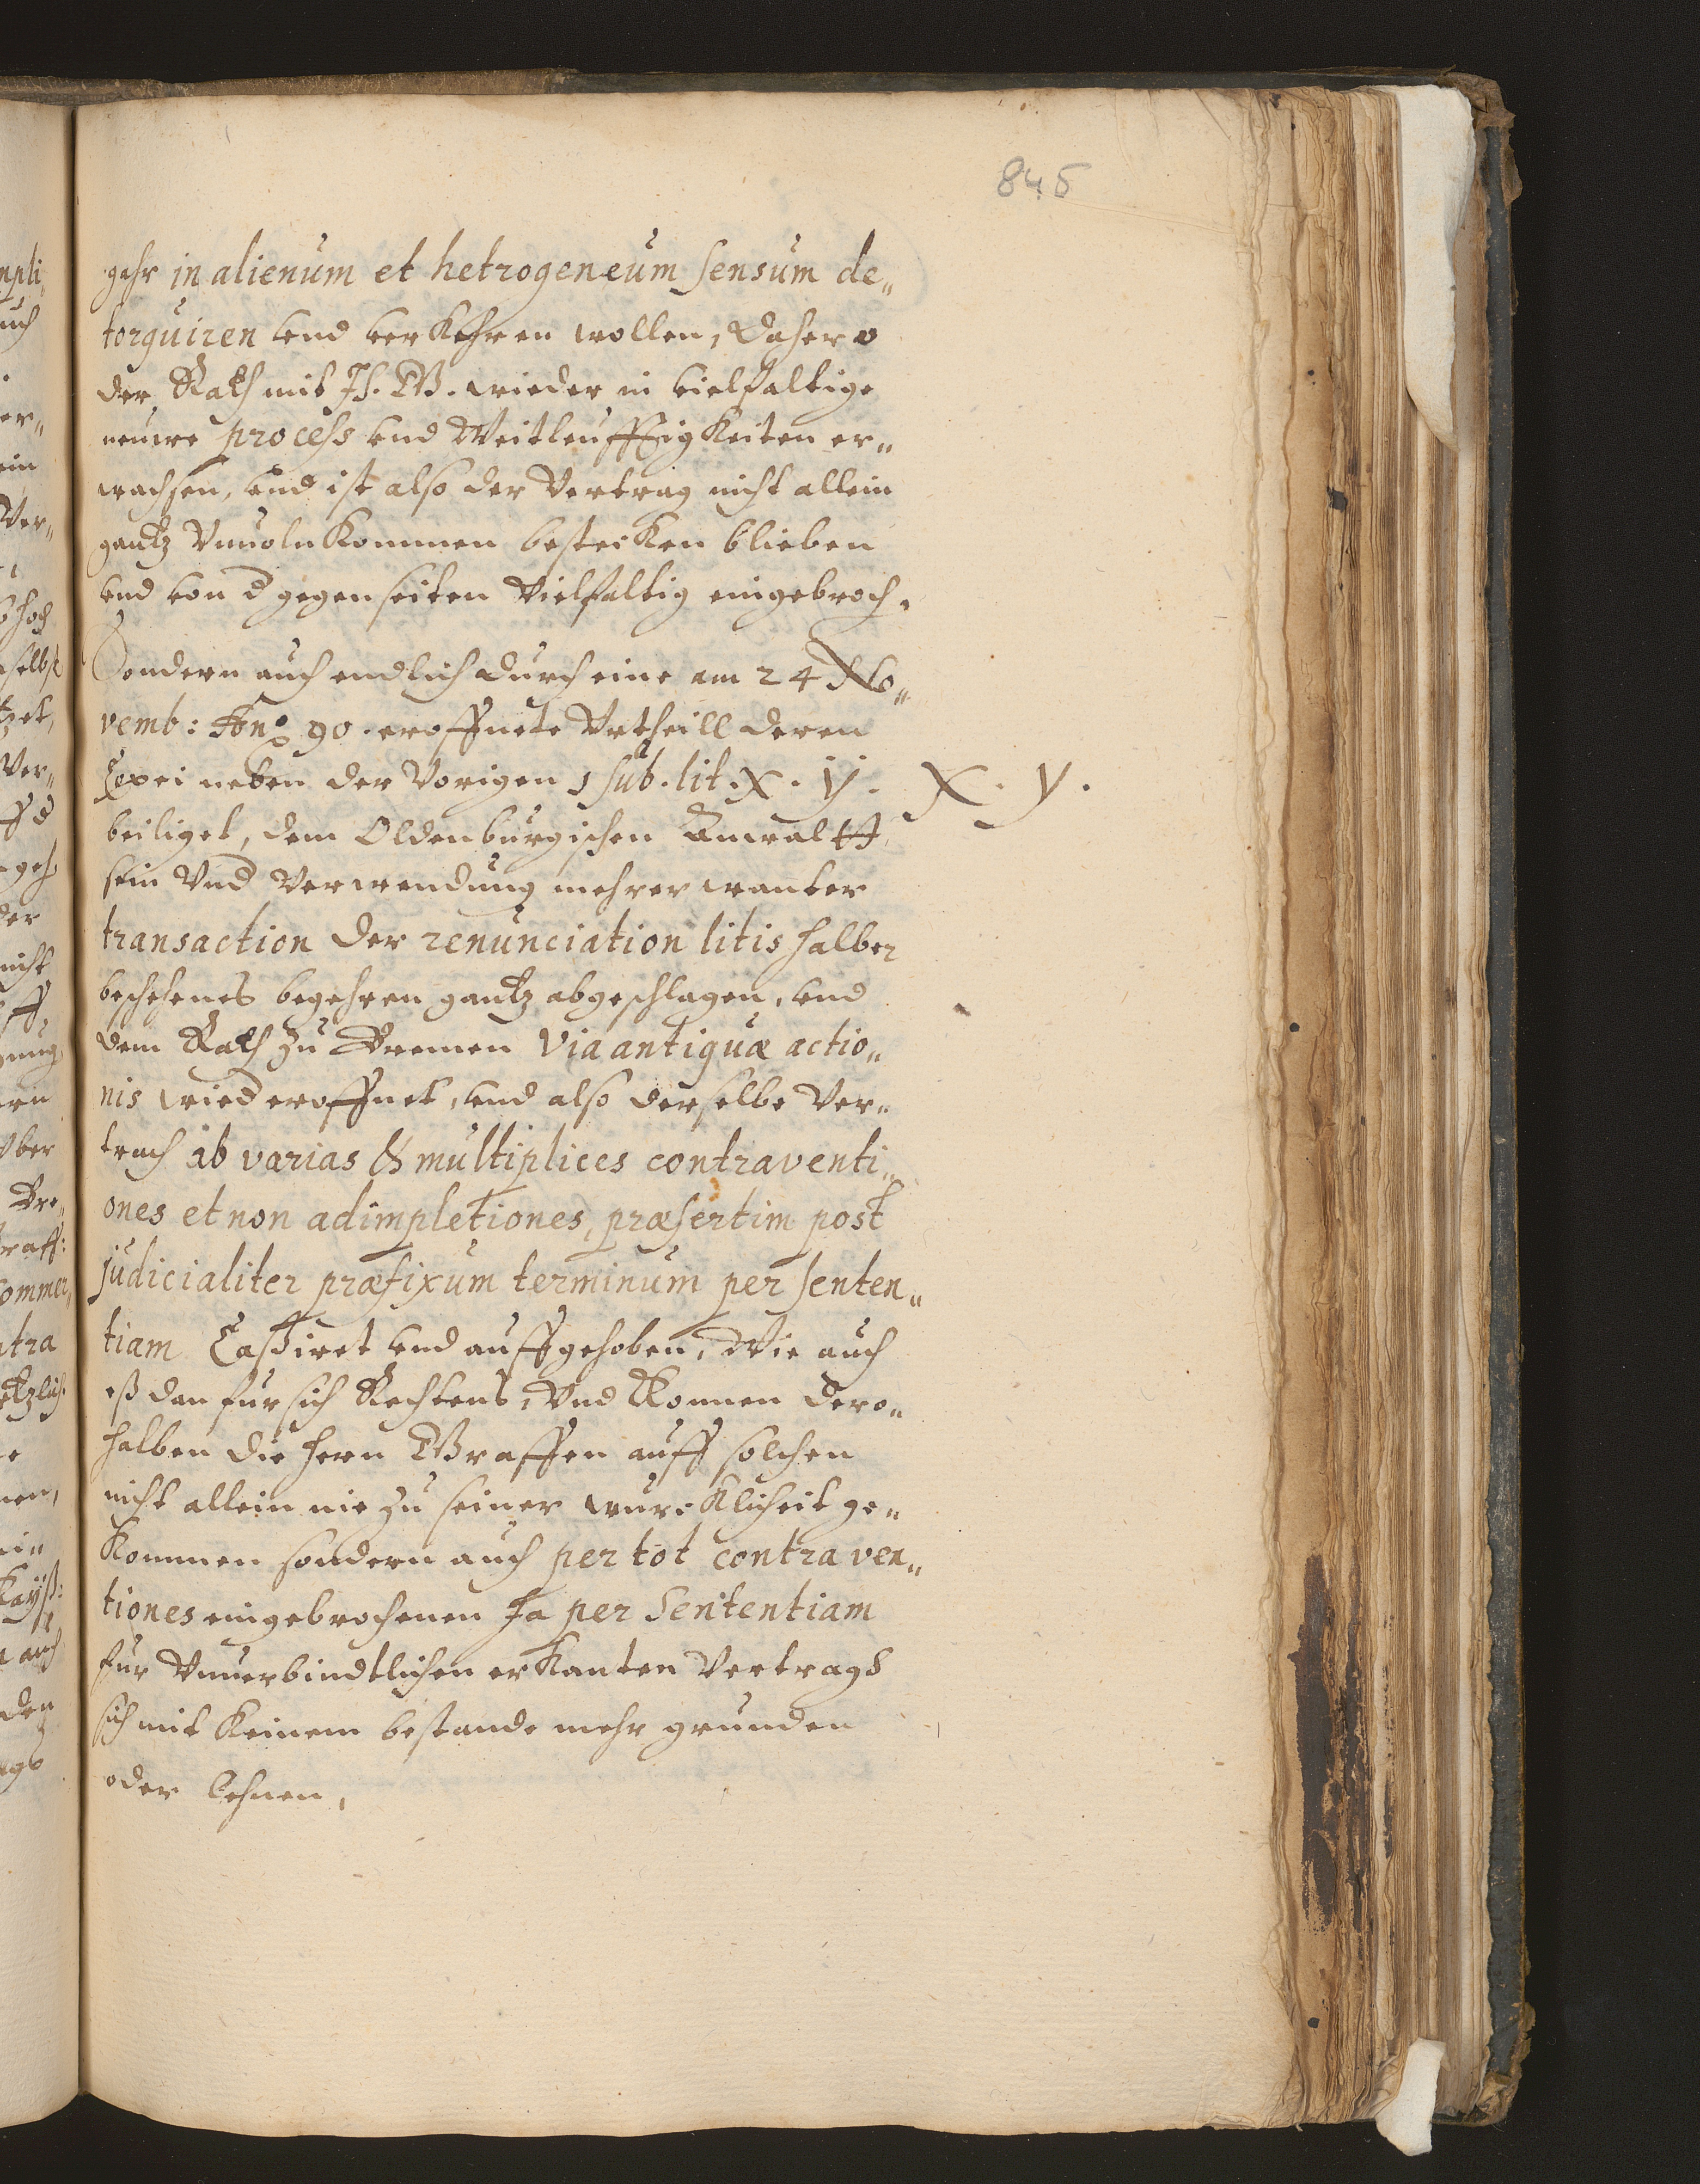 845
gahr in alienum et hetrogeneum sensum de„
torquiren vnd verkehren wollen, Dahero
der Rath mit Ih. GG. wieder in vielfaltige
neuwe process vnd Weitleufftigkeiten er„
wachsen, vnd ist also der Vertrag nicht allein
gantz Vnuolnkommen bestecken blieben
vnd von d gegenseiten Vielfaltig eingebroch.
Sondern auch endlich durch eine am 24 No„
vemb: Ano 90. eroffnete Vrtheill deren
Copei neben der Vorigen sub. lit. X. Y.
X. Y.
beiliget, dem Oldenburgischen Anwaltt
sein Vnd Verwendung mehrerwanter
transaction der renunciation litis halber
beschehenes begehren gantz abgeschlagen, vnd
dem Rath zu Bremen via antiquæ actio„
nis wied eroffnet, vnd also derselbe Ver„
trach ob varias & multiplices contraventi„
ones et non adimpletiones, præsertim post
judicialiter præfixum terminum per senten„
tiam Cassiret vnd auffgehoben, Wie auch
eß dan fur sich Rechtens, Vnd Konnen dero„
halben die Hern Graffen auff solchen
nicht allein nie zu seiner wurcklicheit ge„
kommen sondern auch per tot contraven„
tiones eingebrochenen Ja per Sententiam
fur Vnuerbindtlichen erkanten Vertrags
sich mit keinem bestande mehr grunden
oder lehnen,